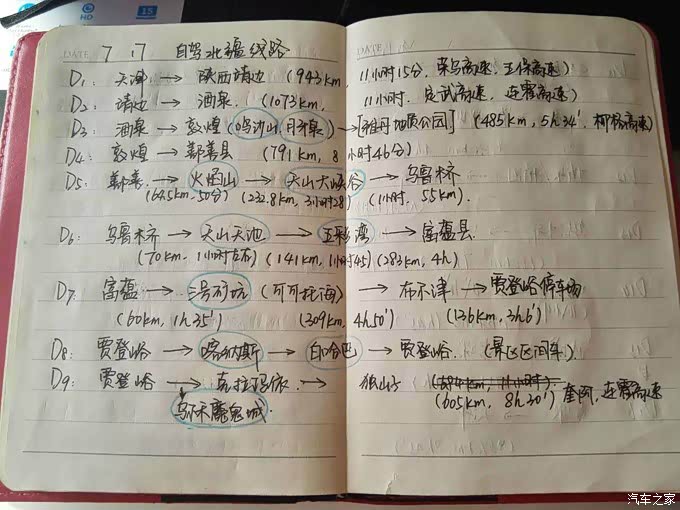 HD
15
DATE 7 17 自驾北疆线路
DATE
D1: 天津 → 陕西靖边 (943km, 11小时15分, 荣乌高速, 王保高速)
D2: 靖边 → 酒泉. (1073km, 11小时, 定武高速, 连霍高速)
D3: 酒泉 → 敦煌 (鸣沙山, 月牙泉) → [雅丹地质公园] (485km, 5h34', 柳格高速)
D4: 敦煌 → 鄯善县 (791km, 8小时46分)
D5: 鄯善 → 火焰山 → 天山大峡谷 → 乌鲁木齐
(64.5km, 50分) (232.8km, 3小时28) (1小时, 55km)
D6: 乌鲁木齐 → 天山天池 → 五彩湾 → 富蕴县
(70km, 1小时左右) (141km, 1小时45) (283km, 4h)
D7: 富蕴 → 3号矿坑 (可可托海) → 布尔津 → 贾登峪停车场
(60km, 1h35') (309km, 4h50') (136km, 3h6')
D8: 贾登峪 → 喀纳斯 → 白哈巴 → 贾登峪. (景区区间车)
D9: 贾登峪 → 克拉玛依 → 独山子 (684km, 11小时)
乌尔禾魔鬼城. (605km, 8h30') 奎阿, 连霍高速
汽车之家